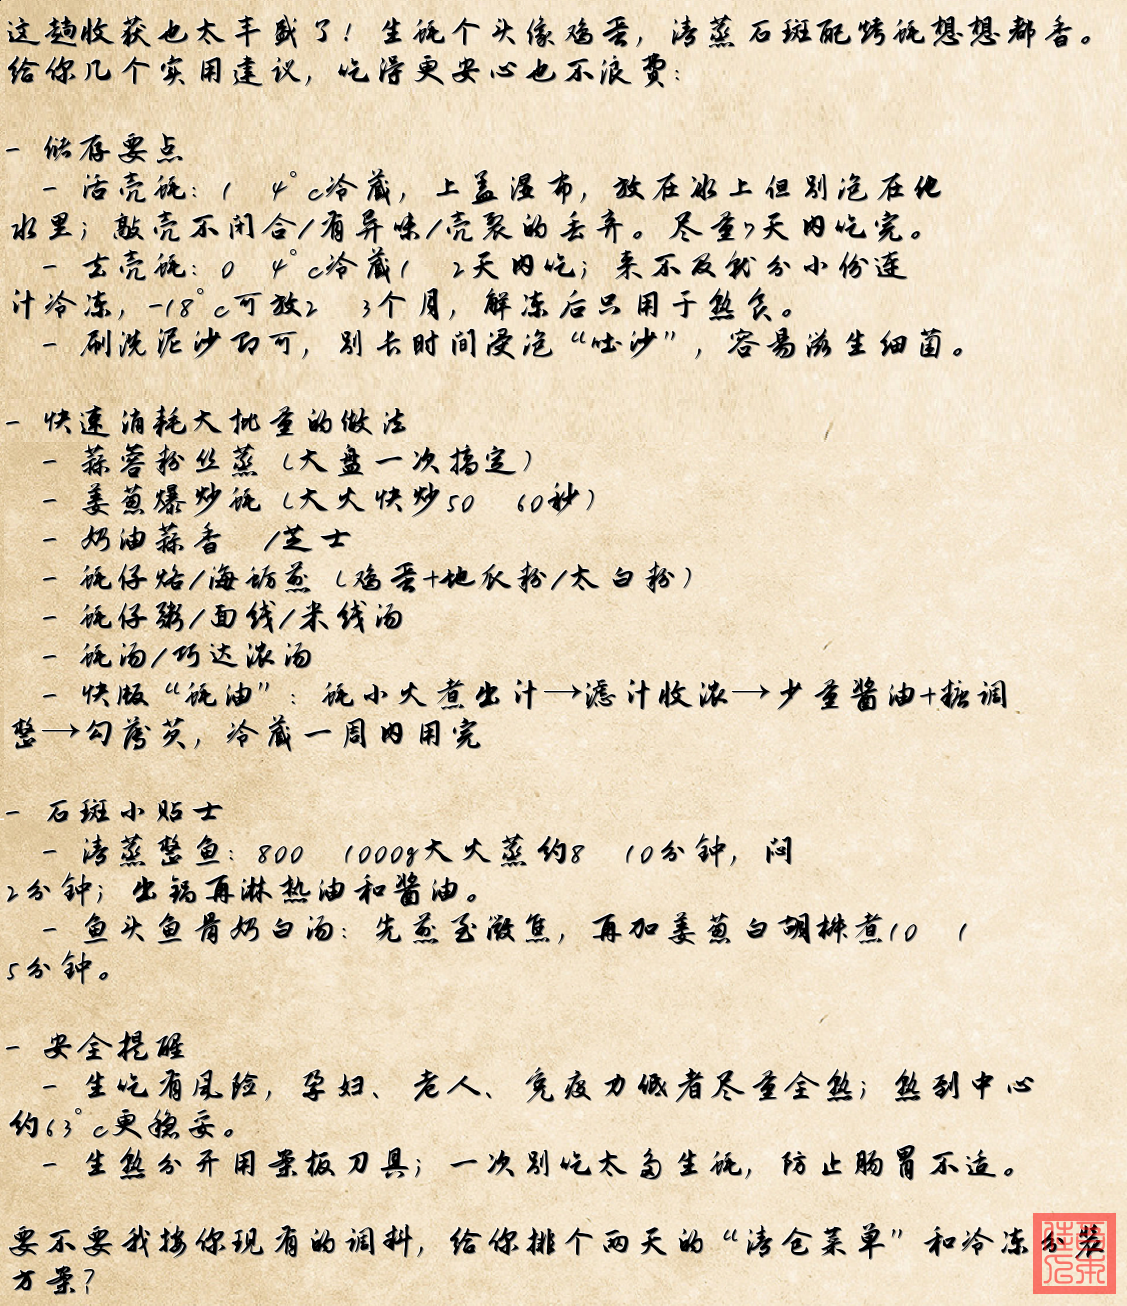 这趟收获也太丰盛了！生蚝个头像鸡蛋，清蒸石斑配烤蚝想想都香。
给你几个实用建议，吃得更安心也不浪费：
- 储存要点
- 活壳蚝：1 4°C冷藏，上盖湿布，放在冰上但别泡在化
水里；敲壳不闭合/有异味/壳裂的丢弃。尽量7天内吃完。
- 去壳蚝：0 4°C冷藏1 2天内吃；来不及就分小份连
汁冷冻，-18°C可放2 3个月，解冻后只用于熟食。
- 刷洗泥沙即可，别长时间浸泡“吐沙”，容易滋生细菌。
- 快速消耗大批量的做法
- 蒜蓉粉丝蒸（大盘一次搞定）
- 姜葱爆炒蚝（大火快炒50 60秒）
- 奶油蒜香 /芝士
- 蚝仔烙/海蛎煎（鸡蛋+地瓜粉/太白粉）
- 蚝仔粥/面线/米线汤
- 蚝汤/巧达浓汤
- 快版“蚝油”：蚝小火煮出汁→滤汁收浓→少量酱油+糖调
整→勾薄芡，冷藏一周内用完
- 石斑小贴士
- 清蒸整鱼：800 1000g大火蒸约8 10分钟，闷
2分钟；出锅再淋热油和酱油。
- 鱼头鱼骨奶白汤：先煎至微焦，再加姜葱白胡椒煮10 1
5分钟。
- 安全提醒
- 生吃有风险，孕妇、老人、免疫力低者尽量全熟；熟到中心
约63°C更稳妥。
- 生熟分开用案板刀具；一次别吃太多生蚝，防止肠胃不适。
要不要我按你现有的调料，给你排个两天的“清仓菜单”和冷冻分装
方案？